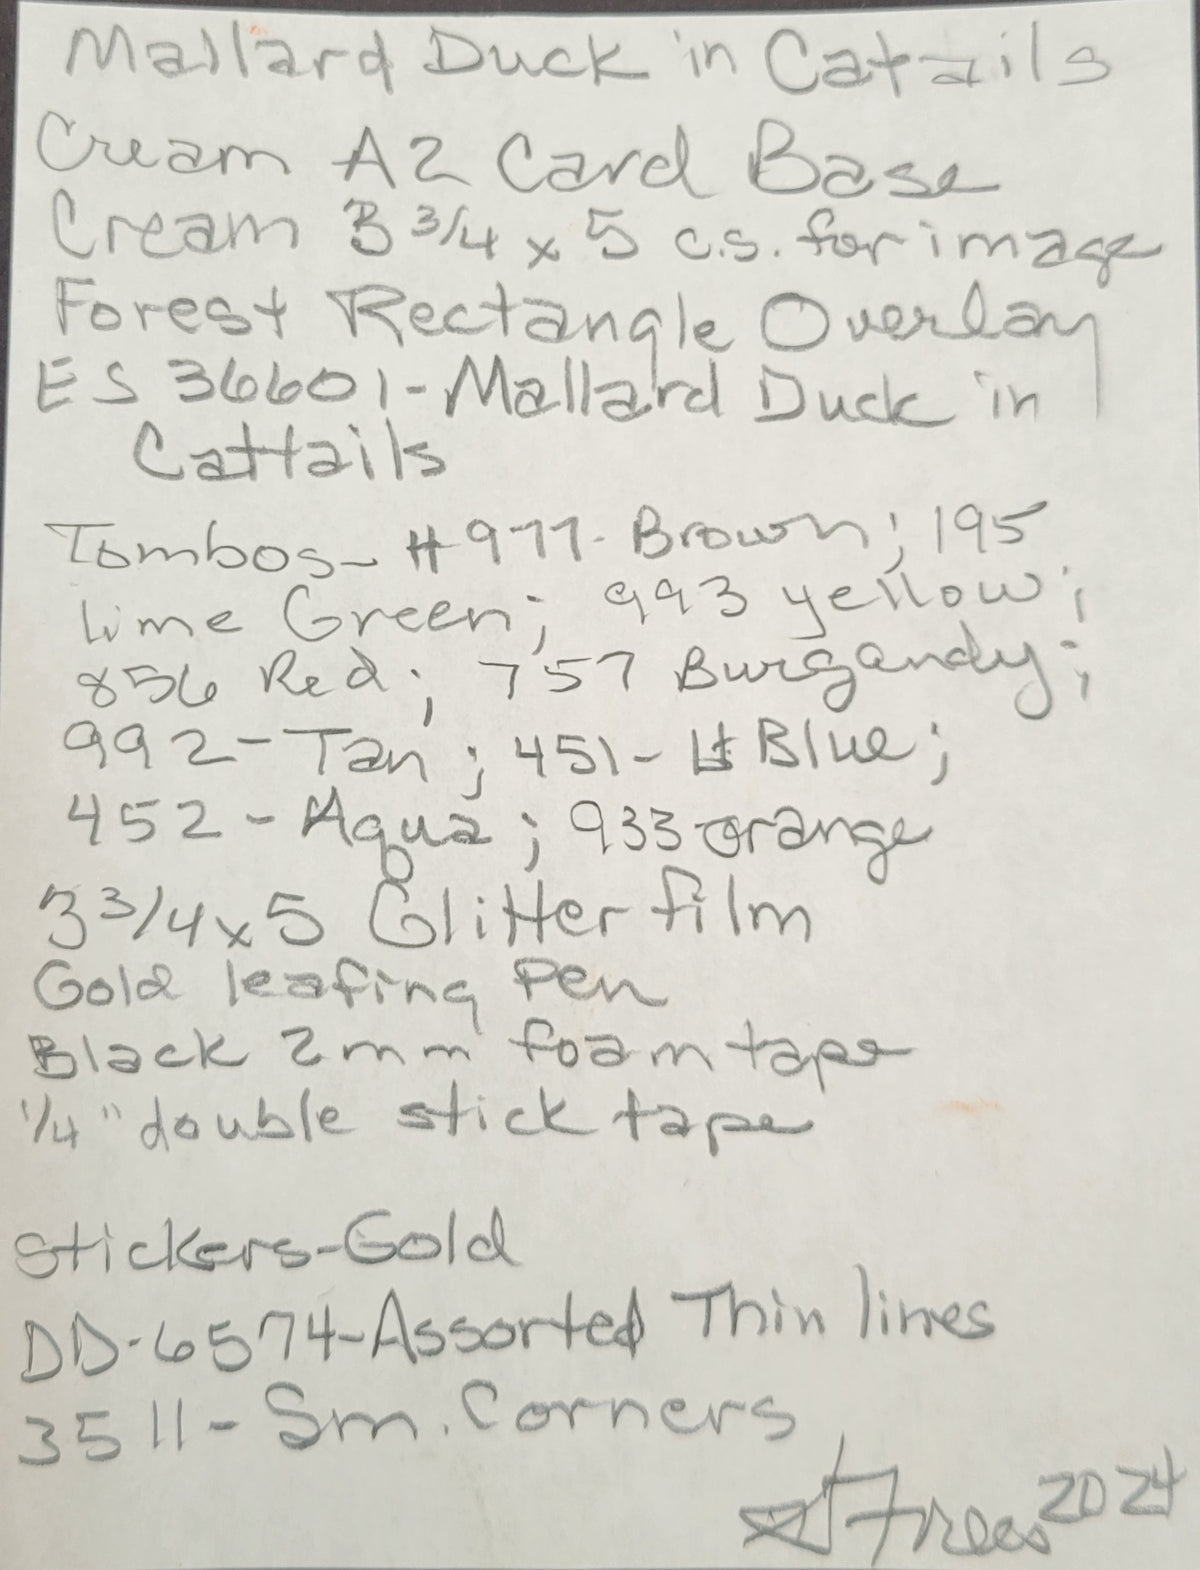 Mallard Duck in Cattails
Cream A2 Card Base
Cream 3 3/4 x 5 c.s. for image
Forest Rectangle Overlay
ES 36601-Mallard Duck in
Cattails
Tombos- #977- Brown; 195
lime Green; 993 yellow;
856 Red; 757 Burgandy;
992-Tan; 451- Lt Blue;
452-Aqua; 933 orange
3 3/4 x 5 Glitter film
Gold leafing Pen
Black 2mm foam tape
1/4" double stick tape
Stickers-Gold
DD-6574-Assorted Thin lines
3511-Sm. Corners
2024